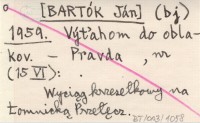 [BARTÓK Ján] (bj)
1959. Výťahom do obla-
kov. – Pravda, nr
(15 VI): .
Wyciąg krzesełkowy na
Łomnicką Przełęcz.
BJ/003/1058